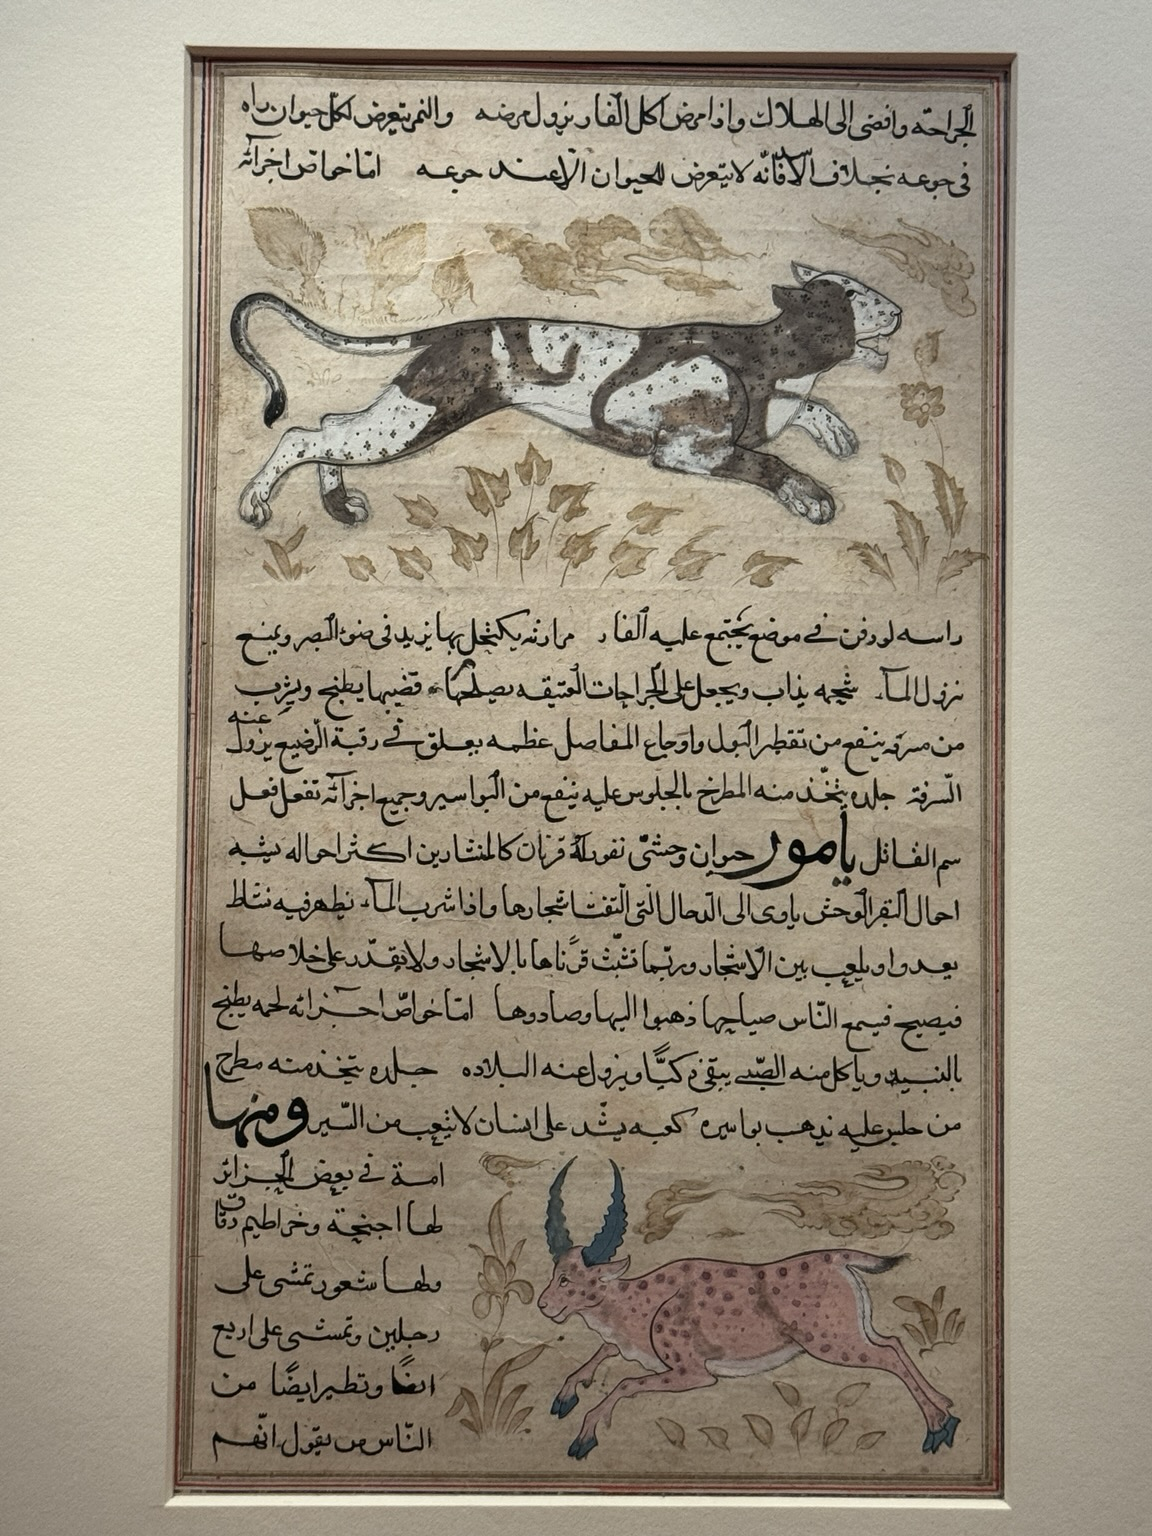 الجراحة وافضى الى الهلاك واذا مرض اكل الفار يزول مرضه والنمر يتعرض لكل حيوان راه
فى جوعه بخلاف الاسد فانّه لا يتعرض للحيوان الا عند جوعه امّا خواص اجزائه
راسه لو دفن فى موضع يجتمع عليه الفار مرارته يكتحل بها يزيد فى ضوء البصر ويمنع
نزول الماء شحمه يذاب ويجعل على الجراحات العتيقه يصلحها قضيبها يطبخ ويشرب
من مرقه ينفع من تقطير البول واوجاع المفاصل عظمه يعلق فى رقبة الرضيع يزول عنه
السرفة جلده يتّخذ منه المطرح بالجلوس عليه ينفع من البواسير وجميع اجزائه تفعل فعل
سم القاتل يامور حيوان وحشىّ نفور له قرنان كالمنشارين اكثر احواله يشبه
احوال البقر الوحش ياوى الى الدحال التى التفت اشجارها واذا شرب الماء يظهر فيه نشاط
يعدو او يلعب بين الاشجار وربّما تشبّث قرناها بالاشجار ولا يقدّر على خلاصها
فيصيح فيسمع النّاس صياحها ذهبوا اليها وصادوها امّا خواصّ اجزائه لحمه يطبخ
بالنبيد وياكل منه الصّبى يبقى ذكيًّا ويزول عنه البلاده جلده يتخذ منه مطرح
من جلس عليه يذهب بواسيره كعبه يشد على انسان لا يتعب من السّير ومنها
امة فى بعض الجزائر
لها اجنحة وخراطيم دقاق
ولها شعور تمشى على
رجلين وتمشى على اربع
ايضًا وتطير ايضًا من
النّاس من يقول انّهم